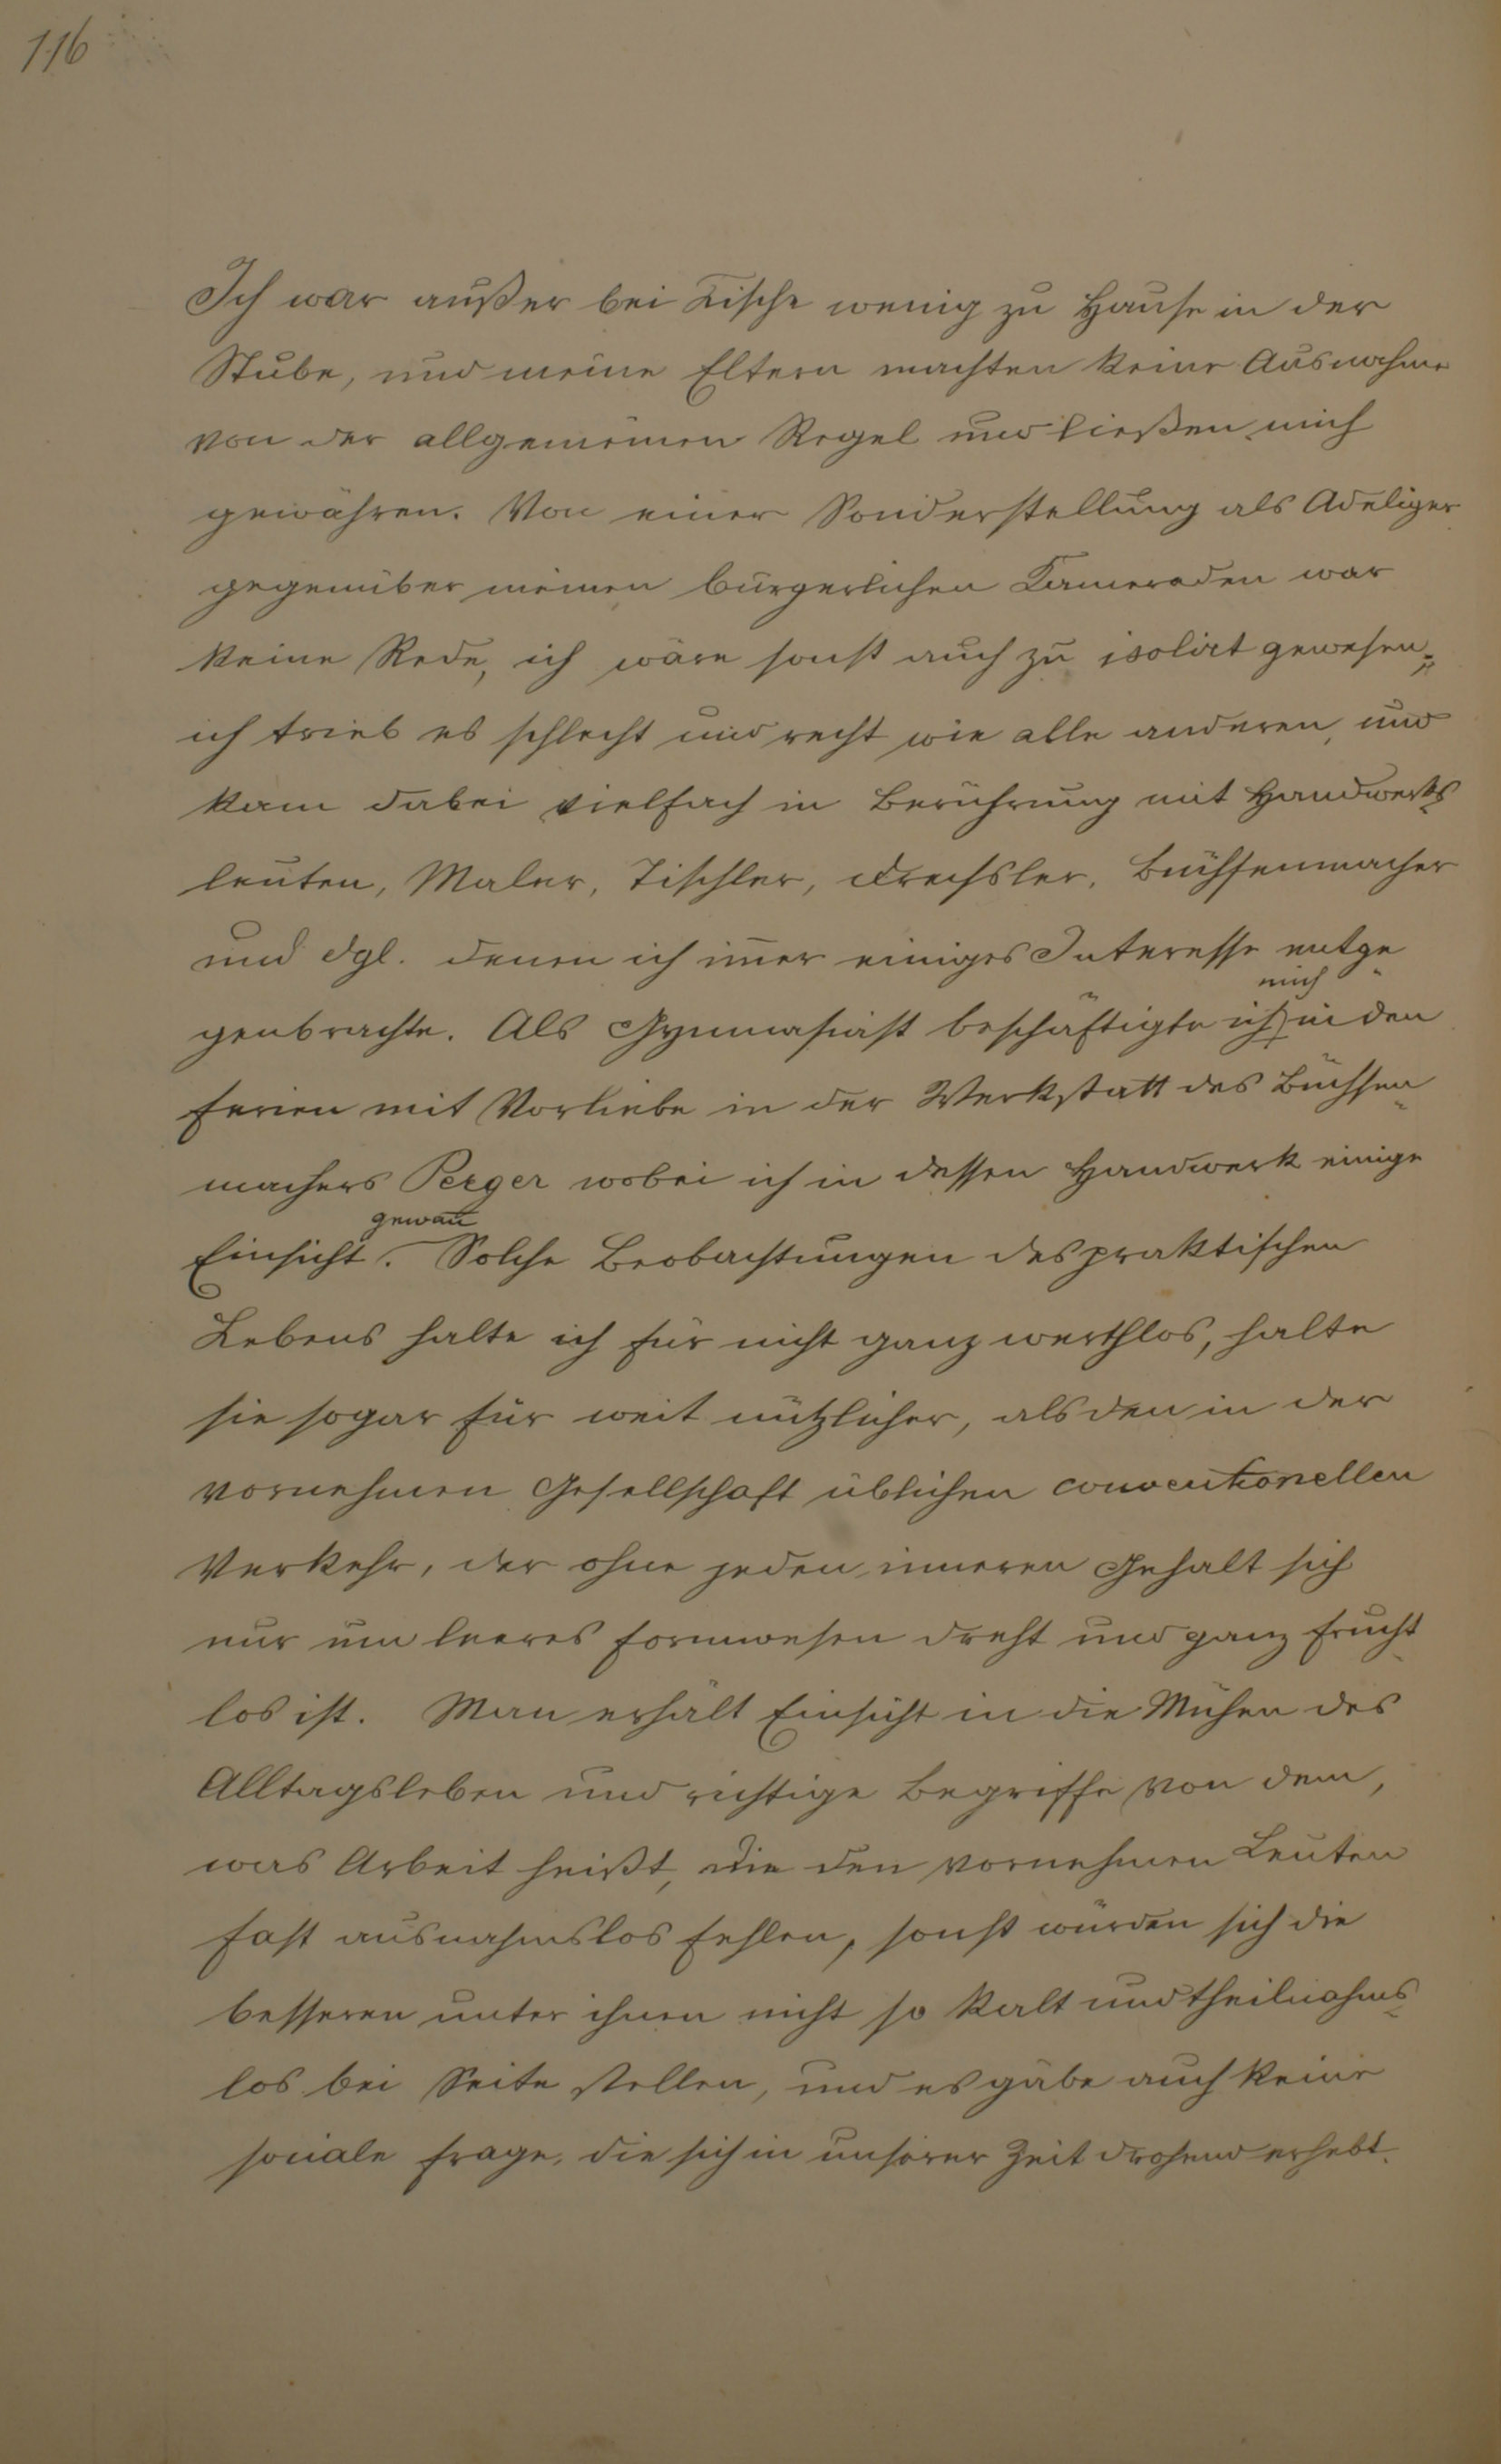 116
Ich war außer bei Tische wenig zu Hause in der
Stube, und meine Eltern machten keine Ausnahme
von der allgemeinen Regel und ließen mich
gewähren. Von einer Sonderstellung als Adeliger
gegenüber meinen bürgerlichen Kameraden war
keine Rede, ich wäre sonst auch zu isolirt gewesen;
ich trieb es schlecht und recht wie alle anderen, und
kam dabei vielfach in Berührung mit Handwerks-
leuten, Maler, Tischler, Drechsler, Büchsenmacher
und dgl. denen ich im̅er einiges Interesse entge-
mich
genbrachte. Als Gymnasiast beschäftigte ich in den
Ferien mit Vorliebe in der Werkstatt des Büchsen-
machers Perger wobei ich in dessen Handwerk einige
gewan̅
Einsicht. Solche Beobachtungen des praktischen
Lebens halte ich für nicht ganz werthlos, halte
sie sogar für weit nützlicher, als den in der
vornehmen Gesellschaft üblichen conventionellen
Verkehr, der ohne jeden inneren Gehalt sich
nur um leeres Formwesen dreht und ganz frucht-
los ist. Man erhält Einsicht in die Mühen des
Alltagsleben und richtige Begriffe von dem,
was Arbeit heißt, die den vornehmen Leuten
fast ausnahmslos fehlen, sonst würden sich die
besseren unter ihnen nicht so kalt und theilnahms-
los bei Seite stellen, und es gäbe auch keine
sociale Frage, die sich in unserer Zeit drohend erhebt.